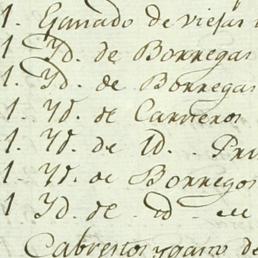 1. Ganado de viejas
1. Yd. de Borregas
1. Yd. de Borregas
1. Yd. de Carneros
1. Yd. de Id. Pri
1. Yd. de Borregos
1. Yd. de id en
Cabrestos y gasto de